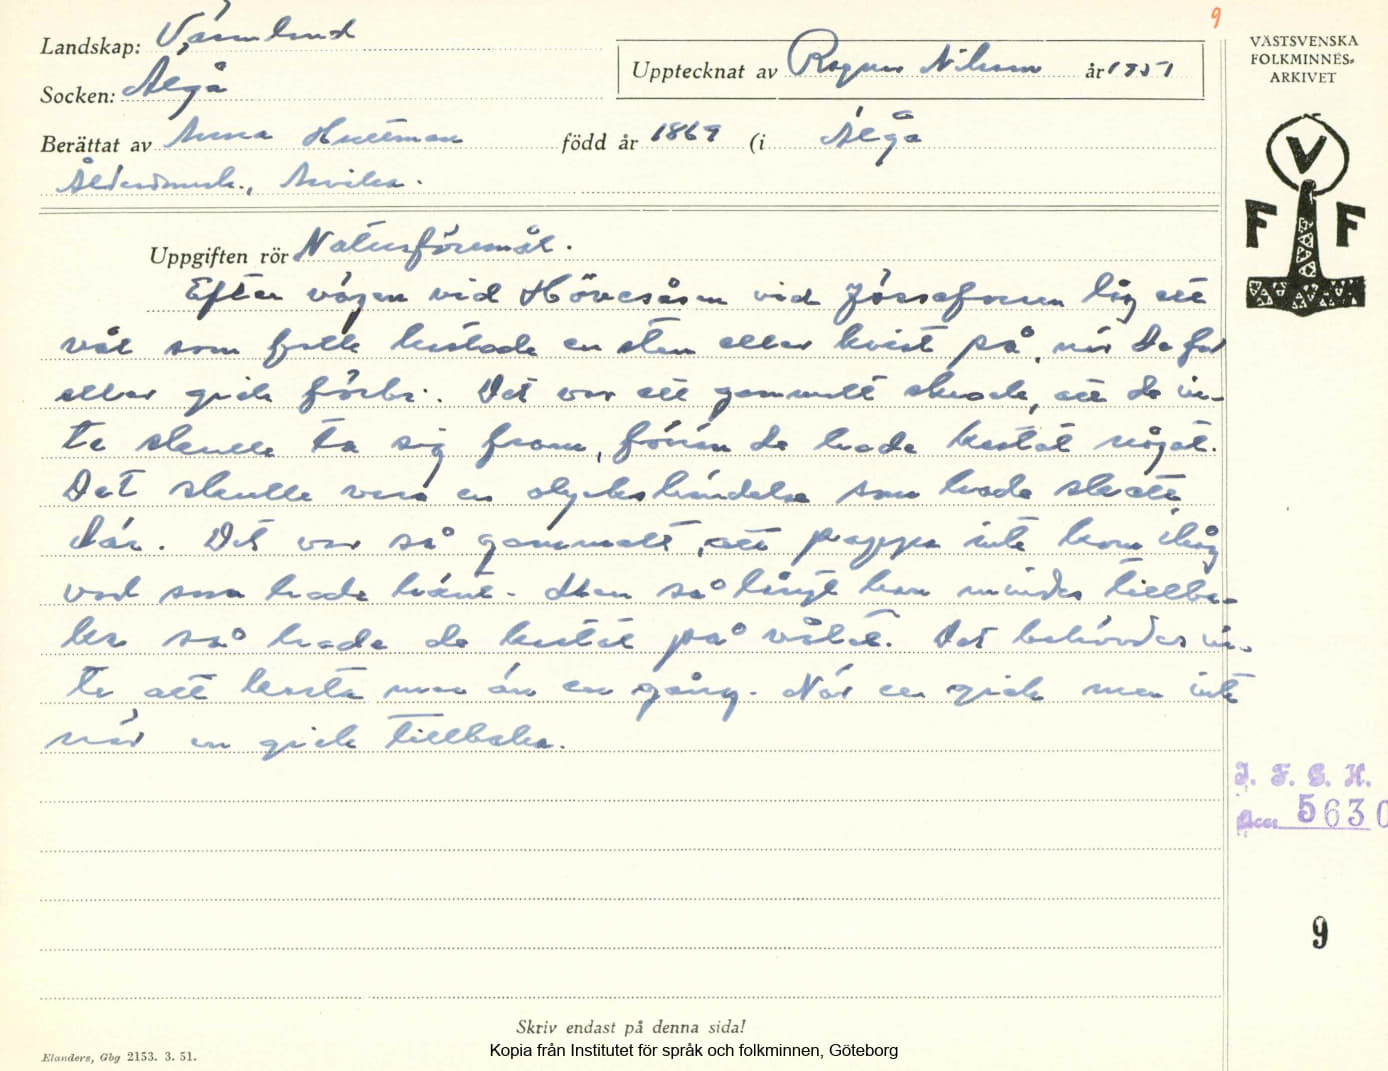 9
Landskap: Värmland
Socken: Älgå
Upptecknat av Ragnar Nilsson år 1951
Berättat av Anna Hultman född år 1869 (i Älgå
Ålderdomsh., Arvika.
VÄSTSVENSKA
FOLKMINNES-
ARKIVET
V
F F
Uppgiften rör Naturföremål.
Efter vägen vid Högsåsen vid Jössefors låg ett
vål som folk kastade en sten eller kvist på, när de for
eller gick förbi. Det var ett gammalt skrock, att de in-
te skulle ta sig fram, förrän de hade kastat något.
Det skulle vara en olyckshändelse som hade skett
där. Det var så gammalt, att pappa inte kom ihåg
vad som hade hänt. Men så långt han mindes tillba-
ka så hade de kastat på vålet. Det behövdes in-
te att kasta mer än en gång. När en gick men inte
när en gick tillbaka.
I. F. G. H.
Acc. 5630
9
Skriv endast på denna sida!
Elanders, Gbg 2153. 3. 51.
Kopia från Institutet för språk och folkminnen, Göteborg